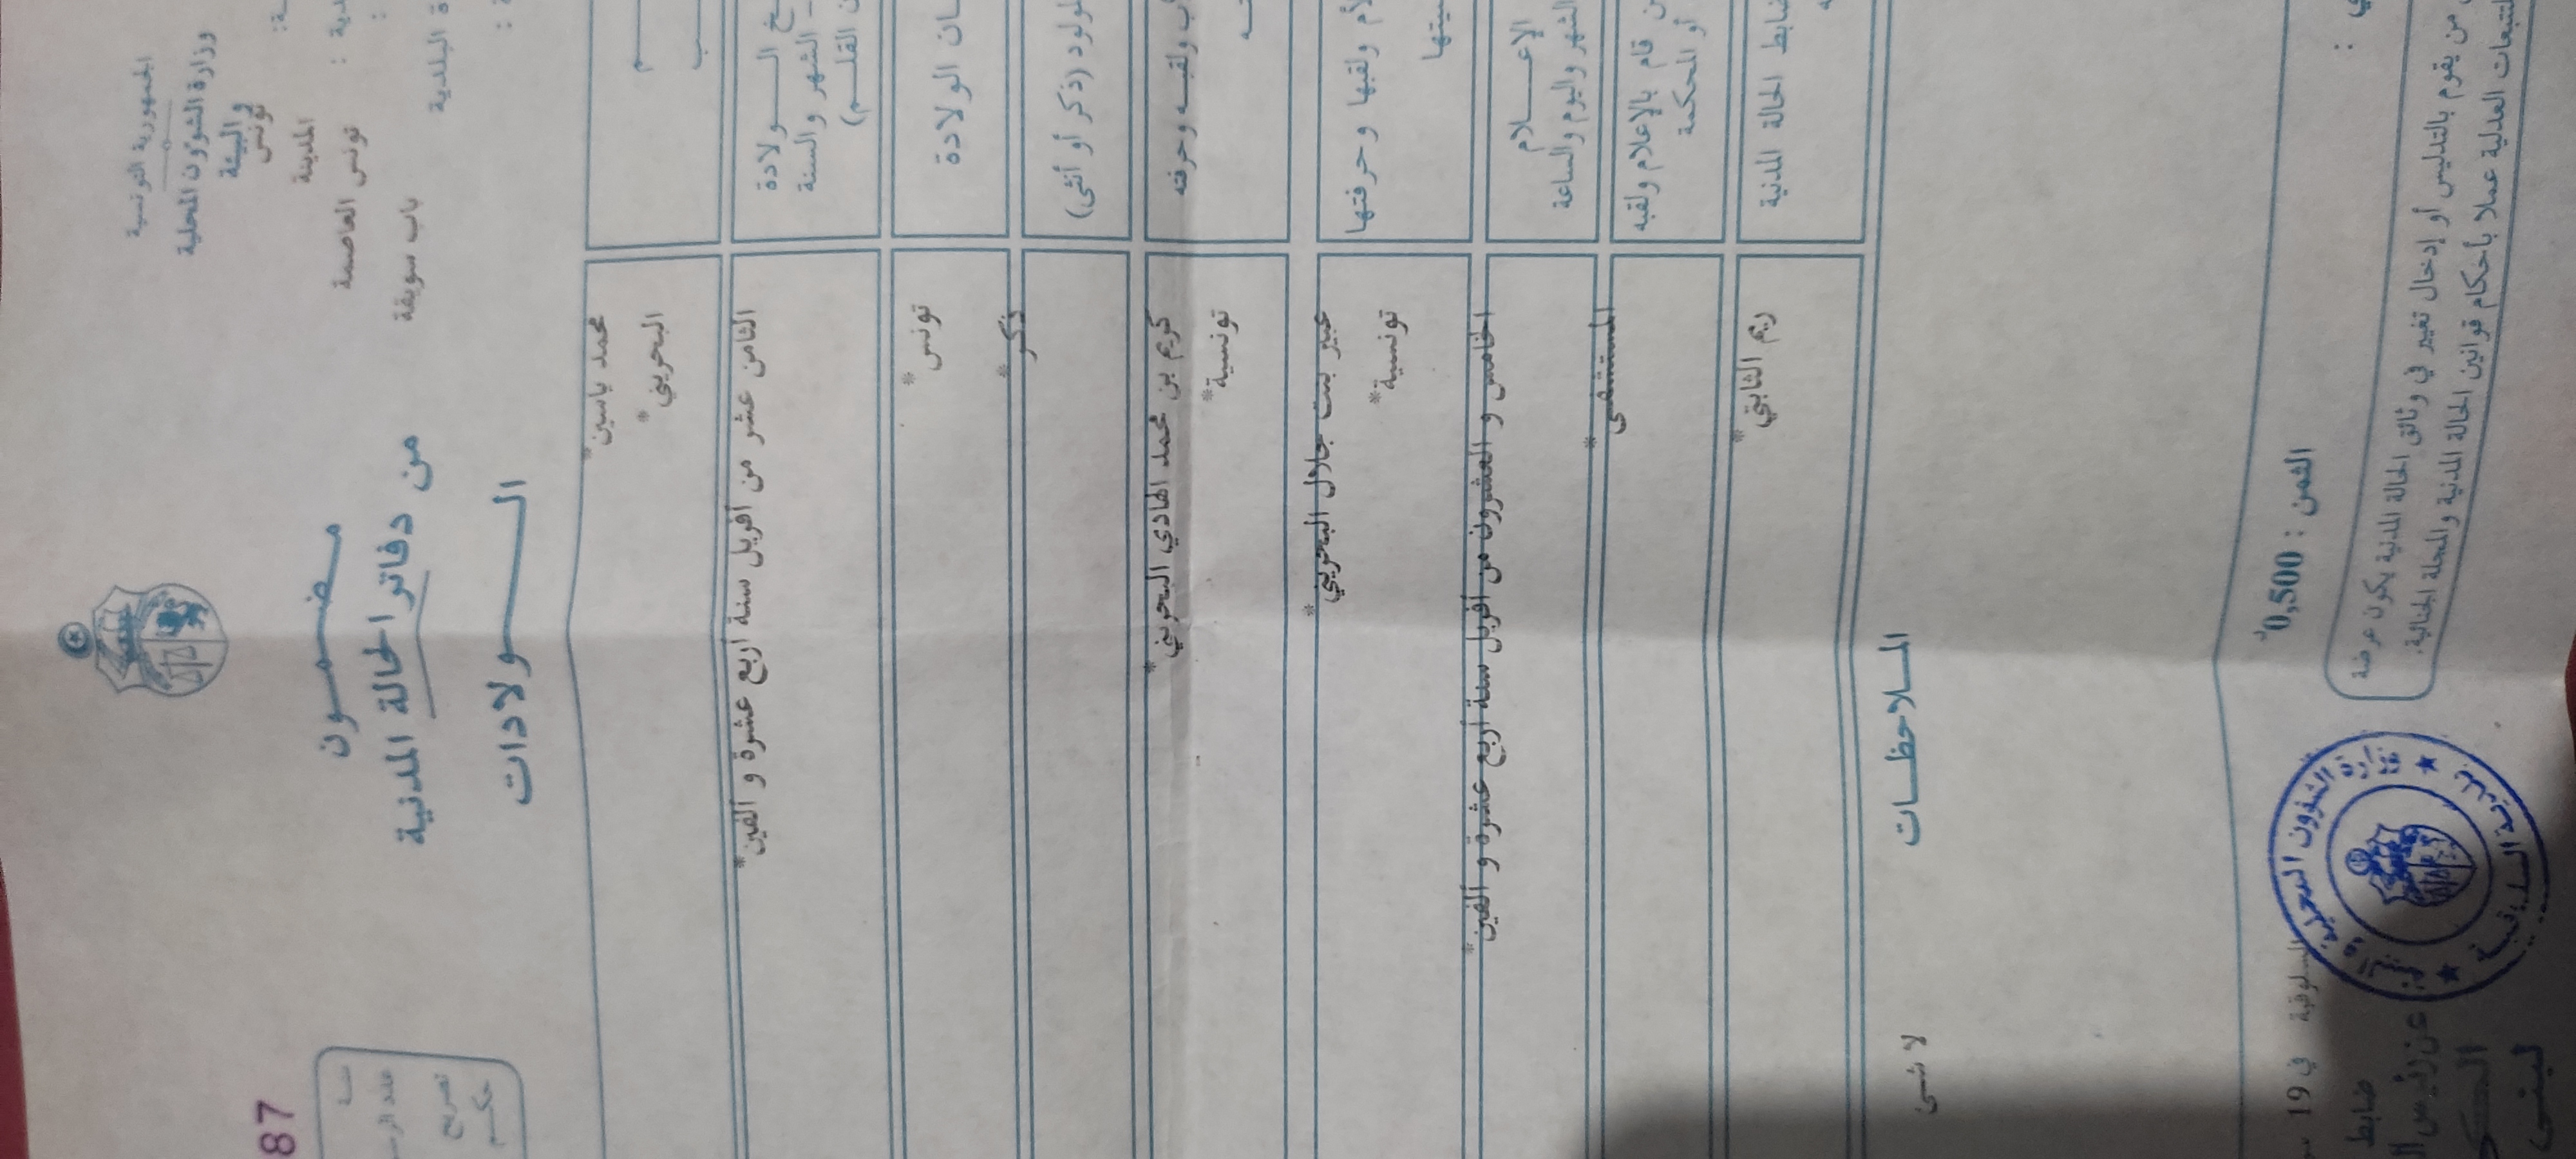 الجمهورية التونسية
وزارة الشؤون المحلية
والبيئة
تونس
المدينة
تونس العاصمة
باب سويقة
مضمون
من دفاتر الحالة المدنية
الولادات
87
محمد ياسين*
البحريني*
الولادة
الشهر والسنة
القلم)
الثامن عشر من أفريل سنة أربع عشرة و ألفين*
الولادة
تونس*
(ذكر أو أنثى)
ذكر*
ولقبه وحرفته
كريم بن محمد الهادي البحريني*
تونسية*
ولقبها وحرفتها
عبير بنت جلال البحريني*
تونسية*
الإعلام
الشهر واليوم والساعة
الخامس و العشرون من أفريل سنة أربع عشرة و ألفين*
قام بالإعلام ولقبه
أو المحكمة
المستشفى*
ضابط الحالة المدنية
ريم الثابتي*
الملاحظات
لا شىء
الثمن : 0,500د
من يقوم بالتدليس أو إدخال تغيير في وثائق الحالة المدنية يكون عرضة
للتتبعات العدلية عملا بأحكام قوانين الحالة المدنية والمجلة الجنائية.
في 19
ضابط
عن رئيس
وزارة الشؤون المحلية